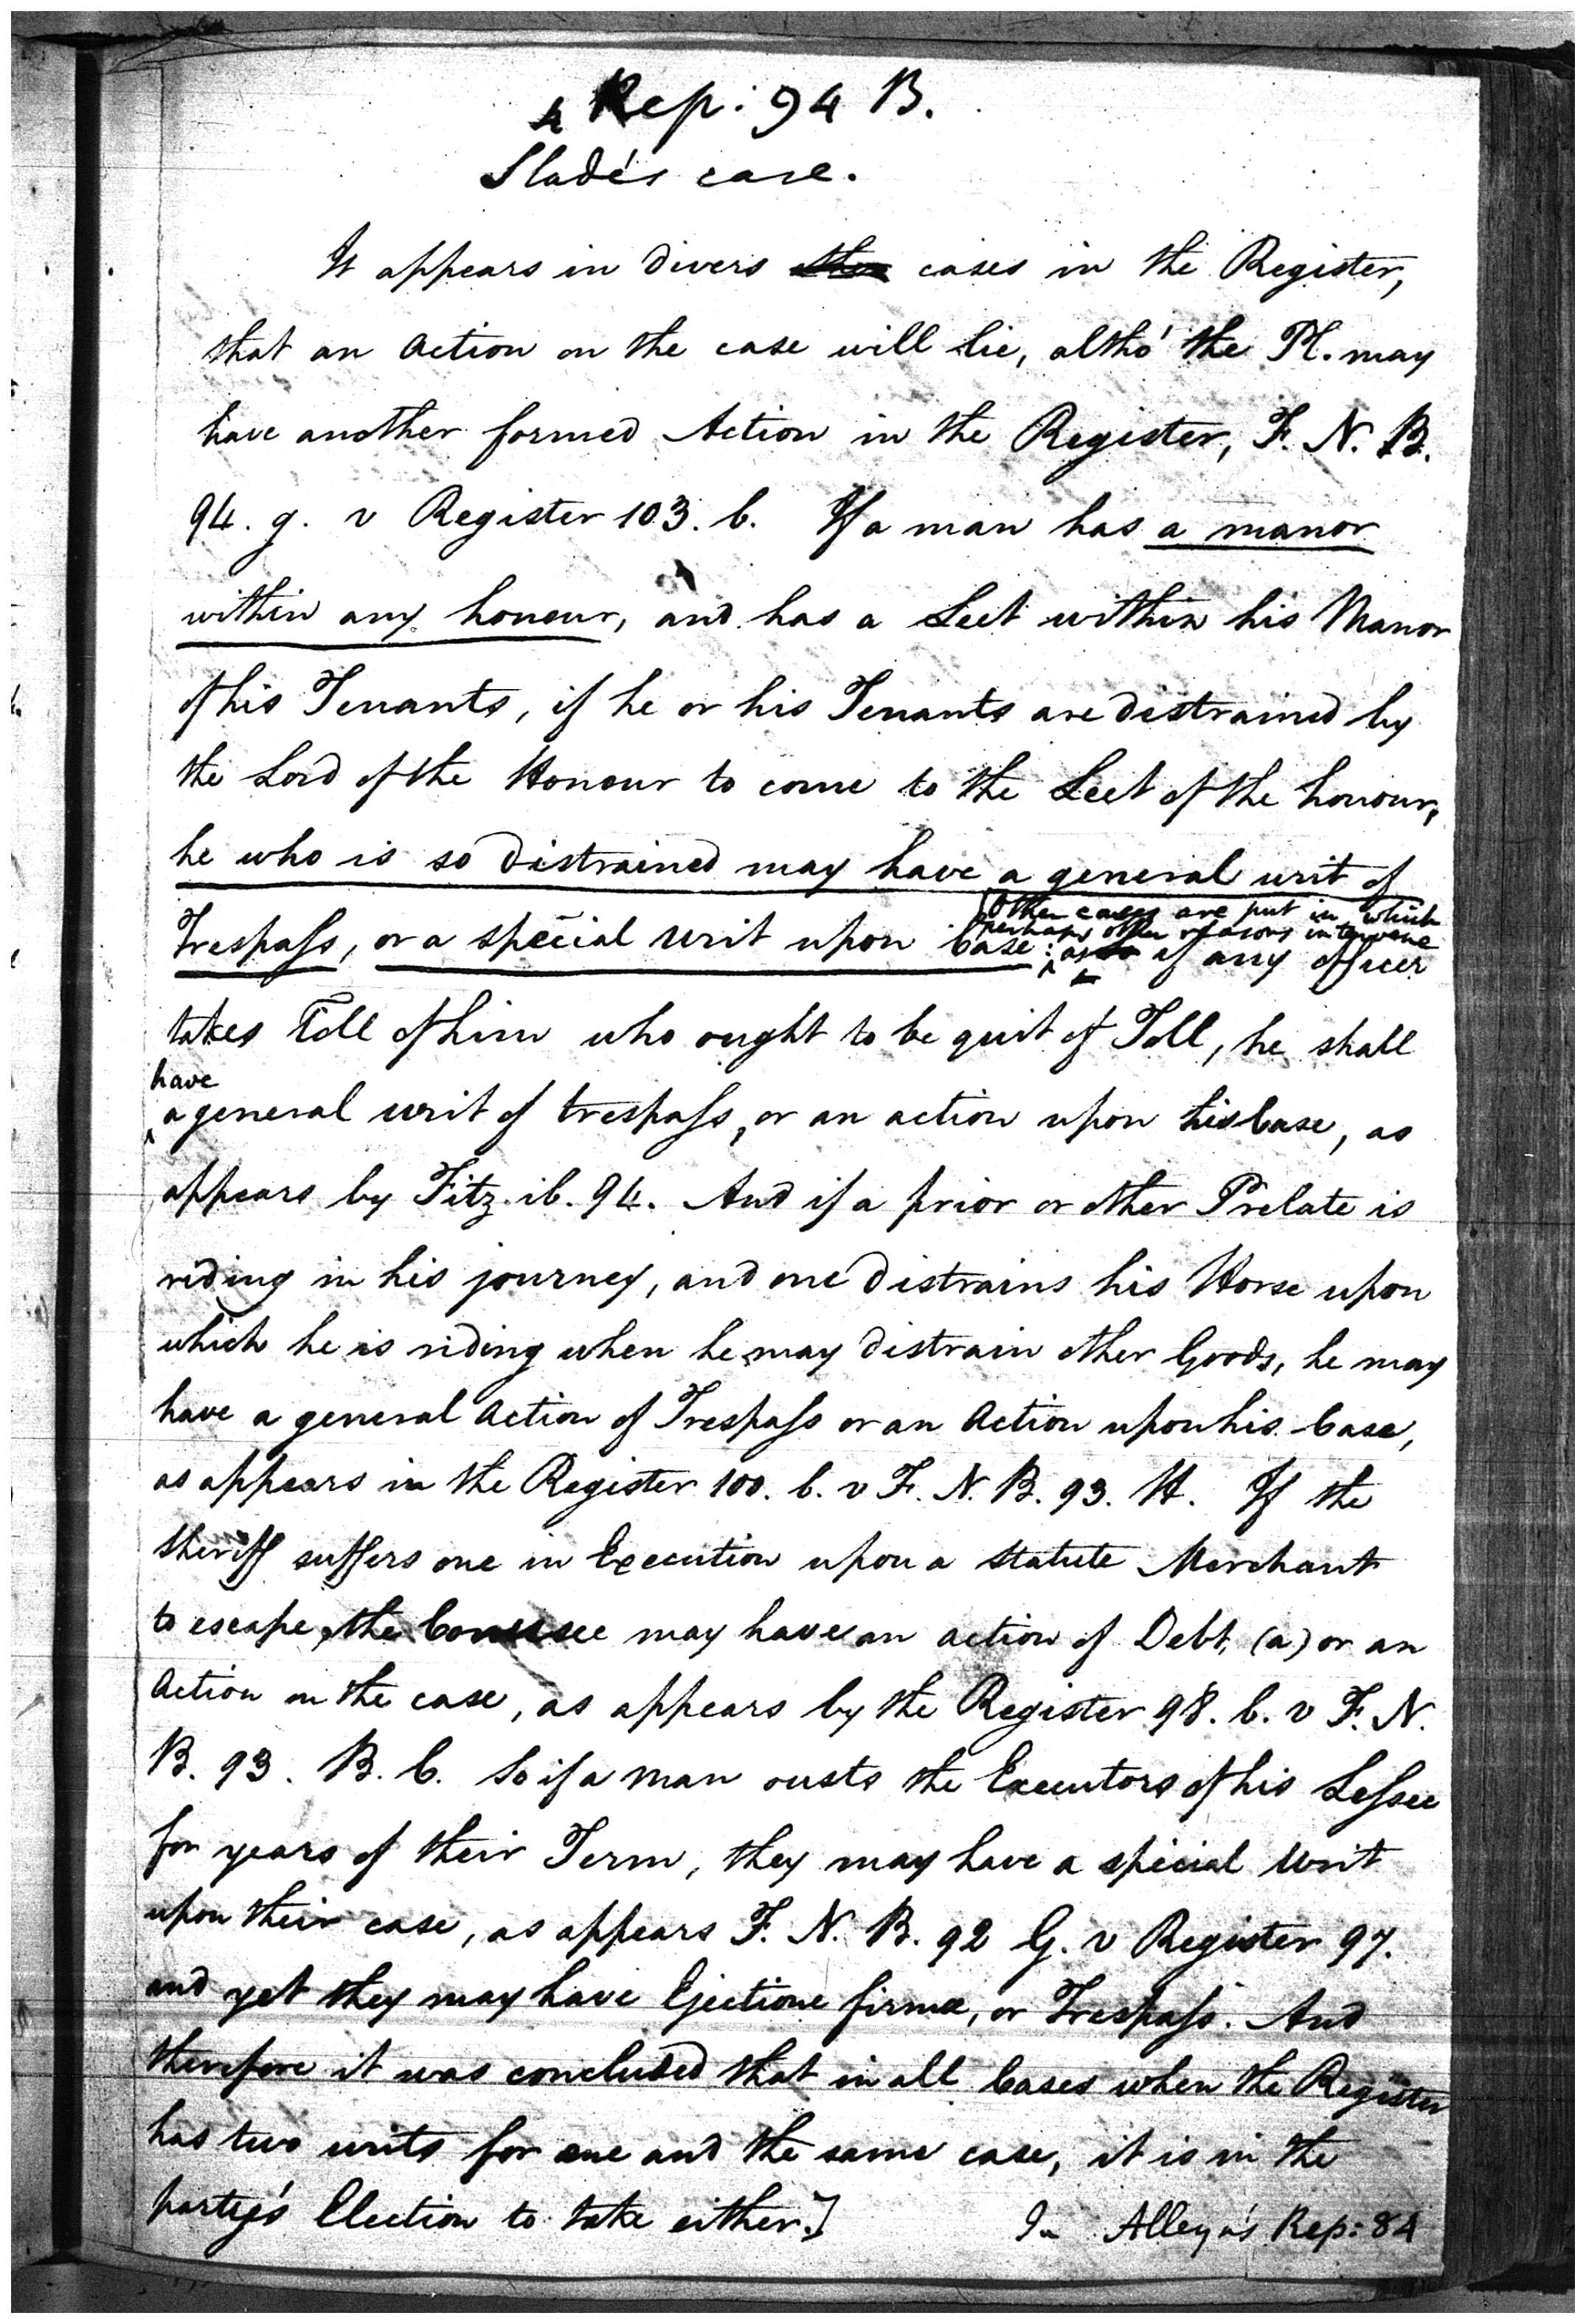 4 Rep: 94 B.
Slade's case.
It appears in divers cases in the Register,
that an Action on the case will lie, altho' the Pl. may
have another formed Action in the Register, F. N. B.
94. g. v Register 103. b. If a man has a manor
within any honour, and has a Leet within his Manor
of his Tenants, if he or his Tenants are distrained by
the Lord of the Honour to come to the Leet of the honour,
he who is so distrained may have a general writ of
[Other cases are put in which
perhaps other reasons intervene
Trespass, or a special writ upon Case: as if any officer
takes Toll of him who ought to be quit of Toll, he shall
have
a general writ of trespass, or an action upon his Case, as
appears by Fitz. ib. 94. And if a prior or other Prelate is
riding in his journey, and one distrains his Horse upon
which he is riding when he may distrain other Goods, he may
have a general Action of Trespass or an Action upon his Case,
as appears in the Register 100. b. v F. N. B. 93. H. If the
sheriff suffers one in Execution upon a statute Merchant
to escape, the Conusee may have an action of Debt, (a) or an
Action on the case, as appears by the Register 98. b. v F. N.
B. 93. B. C. So if a Man ousts the Executors of his Lessee
for years of their Term, they may have a special Writ
upon their case, as appears F. N. B. 92 G. v Register 97.
and yet they may have Ejectione firmæ, or Trespass. And
therefore it was concluded that in all Cases when the Register
has two writs for one and the same case, it is in the
party's Election to take either.]
In Alleyn's Rep: 84